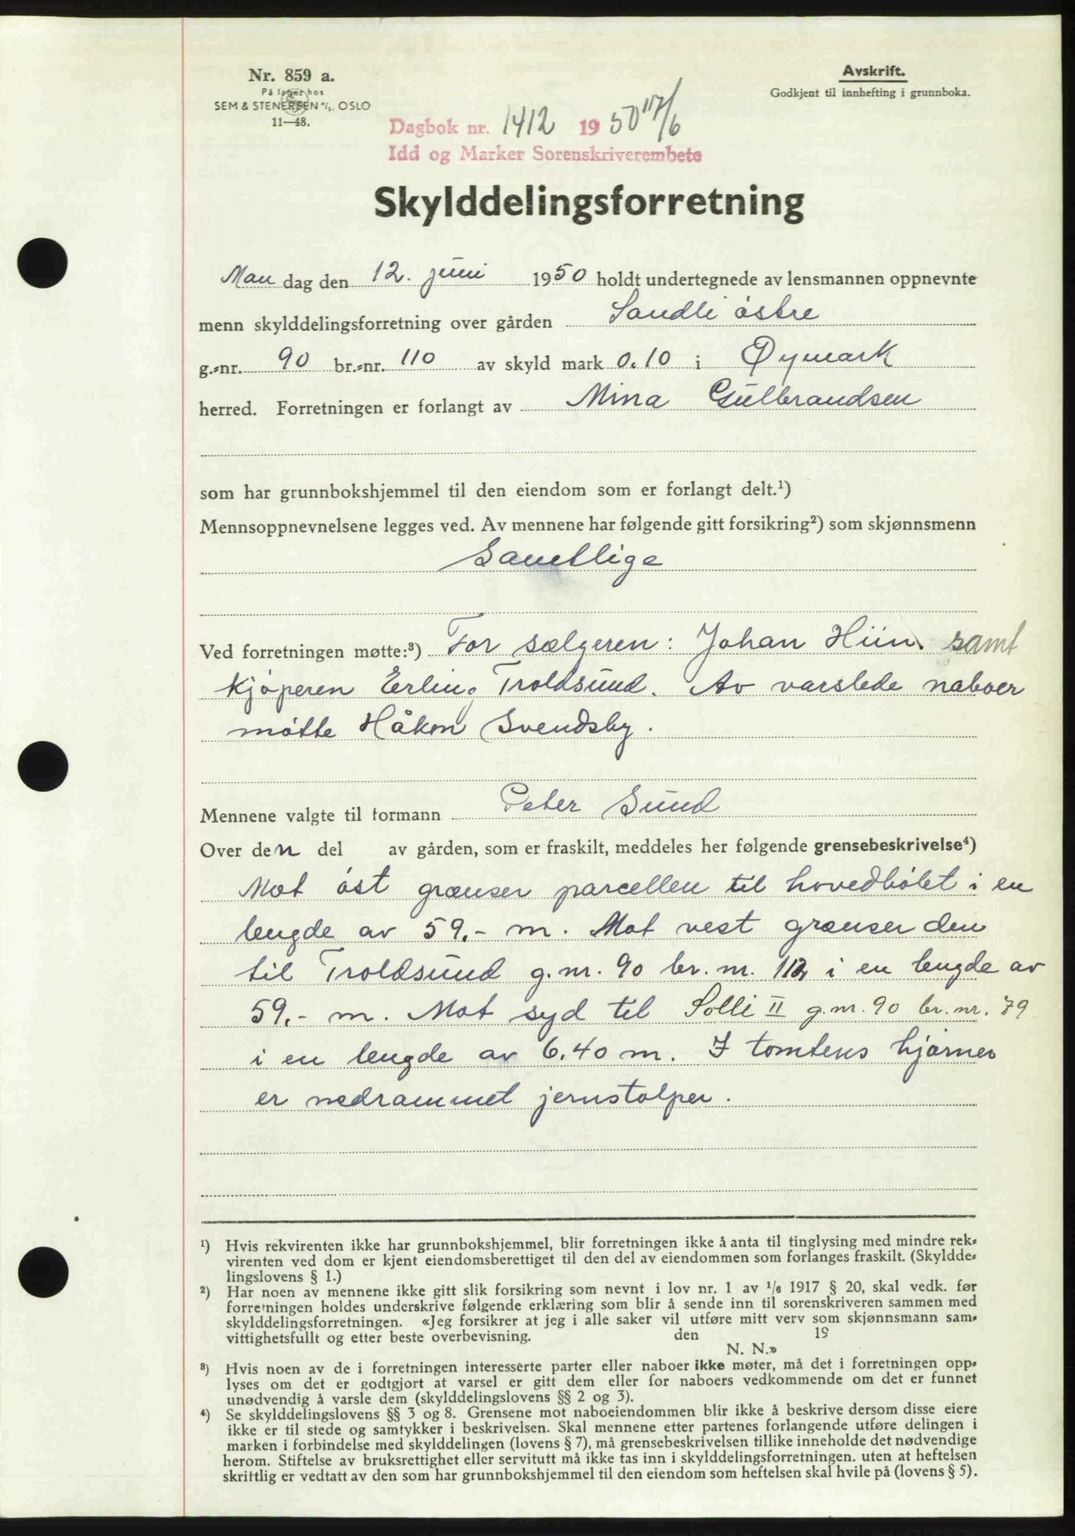 Nr. 859 a.
På lager hos
SEM & STENERSEN A/S, OSLO
11—48.
Avskrift.
Godkjent til innhefting i grunnboka.
Dagbok nr. 1412 1950 17/6
Idd og Marker Sorenskriverembete
Skylddelingsforretning
Man dag den 12. juni 1950 holdt undertegnede av lensmannen oppnevnte
menn skylddelingsforretning over gården Sandli østre
g.-nr. 90 br.-nr. 110 av skyld mark 0.10 i Øymark
herred. Forretningen er forlangt av Mina Gulbrandsen
som har grunnbokshjemmel til den eiendom som er forlangt delt.¹)
Mennsoppnevnelsene legges ved. Av mennene har følgende gitt forsikring²) som skjønnsmenn
Samtlige
Ved forretningen møtte:³) For sælgeren: Johan Hiin samt
kjøperen Erling Troldsund. Av varslede naboer
møtte Håkon Svendsby.
Mennene valgte til formann Peter Sund
Over den del av gården, som er fraskilt, meddeles her følgende grensebeskrivelse⁴)
Mot øst grænser parcellen til hovedbølet i en
lengde av 59,- m. Mot vest grænser den
til Troldsund g.nr. 90 br. nr. 112, i en lengde av
59,- m. Mot syd til Solli II g.nr. 90 br. nr. 79
i en lengde av 6.40 m. I tomtens hjørner
er nedrammet jernstolper.
¹) Hvis rekvirenten ikke har grunnbokshjemmel, blir forretningen ikke å anta til tinglysing med mindre rek-
virenten ved dom er kjent eiendomsberettiget til den del av eiendommen som forlanges fraskilt. (Skyldde-
lingslovens § 1.)
²) Har noen av mennene ikke gitt slik forsikring som nevnt i lov nr. 1 av ¹/₆ 1917 § 20, skal vedk. før
forretningen holdes underskrive følgende erklæring som blir å sende inn til sorenskriveren sammen med
skylddelingsforretningen. «Jeg forsikrer at jeg i alle saker vil utføre mitt verv som skjønnsmann sam-
vittighetsfullt og etter beste overbevisning. den 19
N. N.»
³) Hvis noen av de i forretningen interesserte parter eller naboer ikke møter, må det i forretningen opp-
lyses om det er godtgjort at varsel er gitt dem eller for naboers vedkommende om det er funnet
unødvendig å varsle dem (skylddelingslovens §§ 2 og 3).
⁴) Se skylddelingslovens §§ 3 og 8. Grensene mot naboeiendommen blir ikke å beskrive dersom disse eiere
ikke er til stede og samtykker i beskrivelsen. Skal mennene etter partenes forlangende utføre delingen i
marken i forbindelse med skylddelingen (lovens § 7), må grensebeskrivelsen tillike inneholde det nødvendige
herom. Stiftelse av bruksrettighet eller servitutt må ikke tas inn i skylddelingsforretningen, uten at heftelsen
skriftlig er vedtatt av den som har grunnbokshjemmel til den eiendom som heftelsen skal hvile på (lovens § 5).